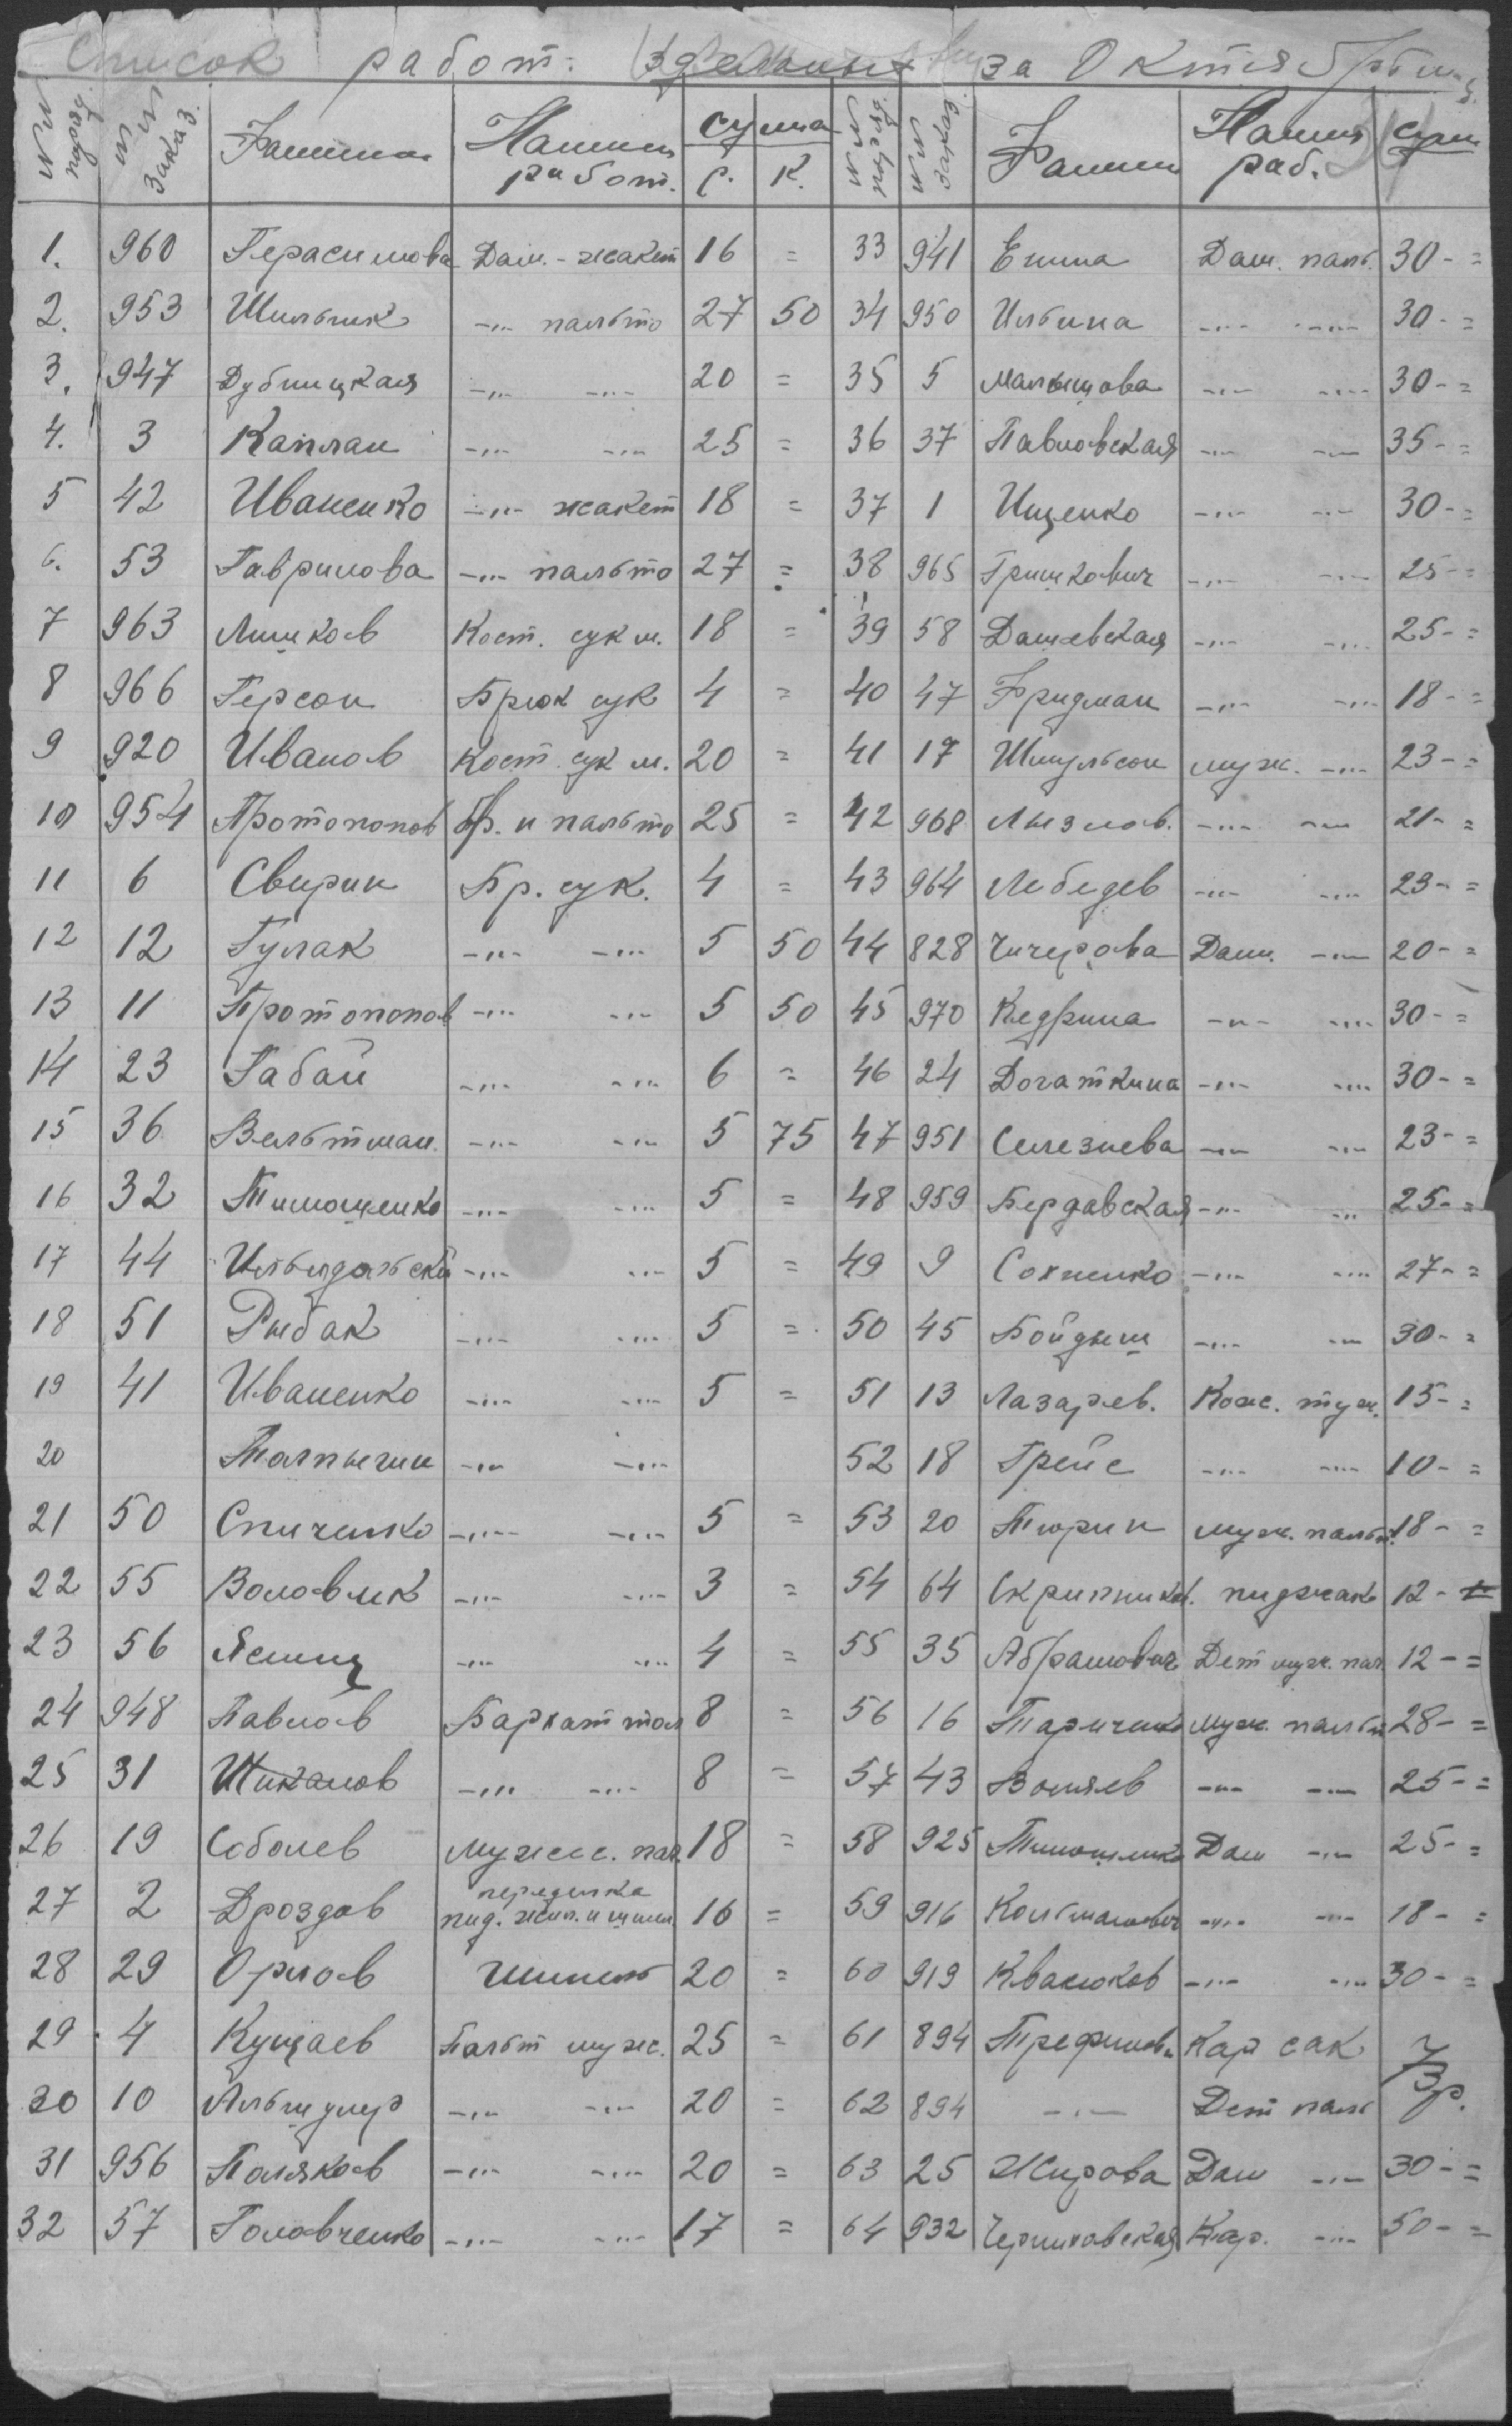 Список работ. за Октябрь м-ц.
№№ поряд. №№ заказ. Фамилия Наимен работ. сумма р. к. №№ поряд. №№ заказ. Фамил Наимн раб. сум
1. 960 Герасимова Дам. - жакет 16 = 33 941 Енина Дам. паль. 30- =
2. 953 Шильник -"- пальто 27 50 34 950 Ильина -"- -"- 30- =
3. 947 Дубницкая -"- -"- 20 = 35 5 Мальцова -"- -"- 30- =
4. 3 Каплан -"- -"- 25 = 36 37 Павловская -"- -"- 35- =
5 42 Иваненко -"- жакет 18 = 37 1 Ищенко -"- -"- 30- =
6. 53 Гаврилова -"- пальто 27 = 38 965 Гришкович -"- -"- 25- =
7 963 Лишков Кост. сук м. 18 = 39 58 Дашевская -"- -"- 25- =
8 966 Герсон Брюк сук 4 = 40 47 Фридман -"- -"- 18- =
9 920 Иванов Кост. сук м. 20 = 41 17 Шмульсон муж. -"- 23- =
10 954 Протопопов бр. и пальто 25 = 42 968 Лызлов. -"- -"- 21- =
11 6 Свирин Бр. сук. 4 = 43 964 Лебедев -"- -"- 23- =
12 12 Гулак -"- -"- 5 50 44 828 Чичерова Дам. -"- 20- =
13 11 Протопопов -"- -"- 5 50 45 970 Кедрина -"- -"- 30- =
14 23 Габай -"- -"- 6 = 46 24 Догаткина -"- -"- 30- =
15 36 Вельтман. -"- -"- 5 75 47 951 Селезнева -"- -"- 23- =
16 32 Тимошенко -"- -"- 5 = 48 959 Бердавская -"- -"- 25- =
17 44 -"- -"- 5 = 49 9 Сохненко -"- -"- 27- =
18 51 Рыбак -"- -"- 5 = 50 45 Бойдыш -"- -"- 30- =
19 41 Иваненко -"- -"- 5 = 51 13 Лазарев. Кож. туж. 15- =
20 Толпыгин -"- -"- 52 18 Грейс -"- -"- 10- =
21 50 Спиченко -"- -"- 5 = 53 20 Тюрин муж. пальт. 18- =
22 55 Воловик -"- -"- 3 = 54 64 Скрипников. пиджак 12- =
23 56 -"- -"- 4 = 55 35 Абрамович Дет муж. пал 12- =
24 948 Павлов Бархат тол 8 = 56 16 Тариченко муж. пальт 28- =
25 31 Шикалов -"- -"- 8 = 57 43 -"- -"- 25- =
26 19 Соболев Мужск. пал. 18 = 58 925 Тимошенко Дам -"- 25- =
27 2 Дроздов переделка пид. жил. и шин. 16 = 59 916 -"- -"- 18- =
28 29 Орлов Шинель 20 = 60 919 Квасюков -"- -"- 30- =
29 4 Кущаев Пальт муж. 25 = 61 894 Кар сак
30 10 -"- -"- 20 = 62 894 -"- Дет паль 73р.
31 956 Поляков -"- -"- 20 = 63 25 Жирова Дам -"- 30- =
32 57 Головченко -"- -"- 17 = 64 932 Черниховская Кар. -"- 50- =